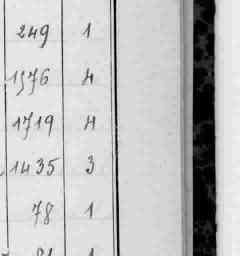 249 1
1576 4
1719 4
1435 3
78 1